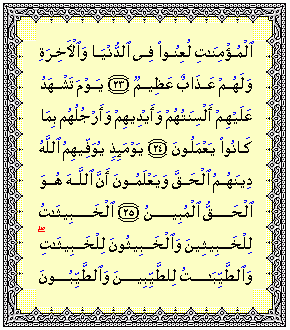 ٱلْمُؤْمِنَٰتِ لُعِنُوا۟ فِى ٱلدُّنْيَا وَٱلْءَاخِرَةِ
وَلَهُمْ عَذَابٌ عَظِيمٌ ﴿٢٣﴾ يَوْمَ تَشْهَدُ
عَلَيْهِمْ أَلْسِنَتُهُمْ وَأَيْدِيهِمْ وَأَرْجُلُهُم بِمَا
كَانُوا۟ يَعْمَلُونَ ﴿٢٤﴾ يَوْمَئِذٍ يُوَفِّيهِمُ ٱللَّهُ
دِينَهُمُ ٱلْحَقَّ وَيَعْلَمُونَ أَنَّ ٱللَّهَ هُوَ
ٱلْحَقُّ ٱلْمُبِينُ ﴿٢٥﴾ ٱلْخَبِيثَٰتُ
لِلْخَبِيثِينَ وَٱلْخَبِيثُونَ لِلْخَبِيثَٰتِ ۖ
وَٱلطَّيِّبَٰتُ لِلطَّيِّبِينَ وَٱلطَّيِّبُونَ